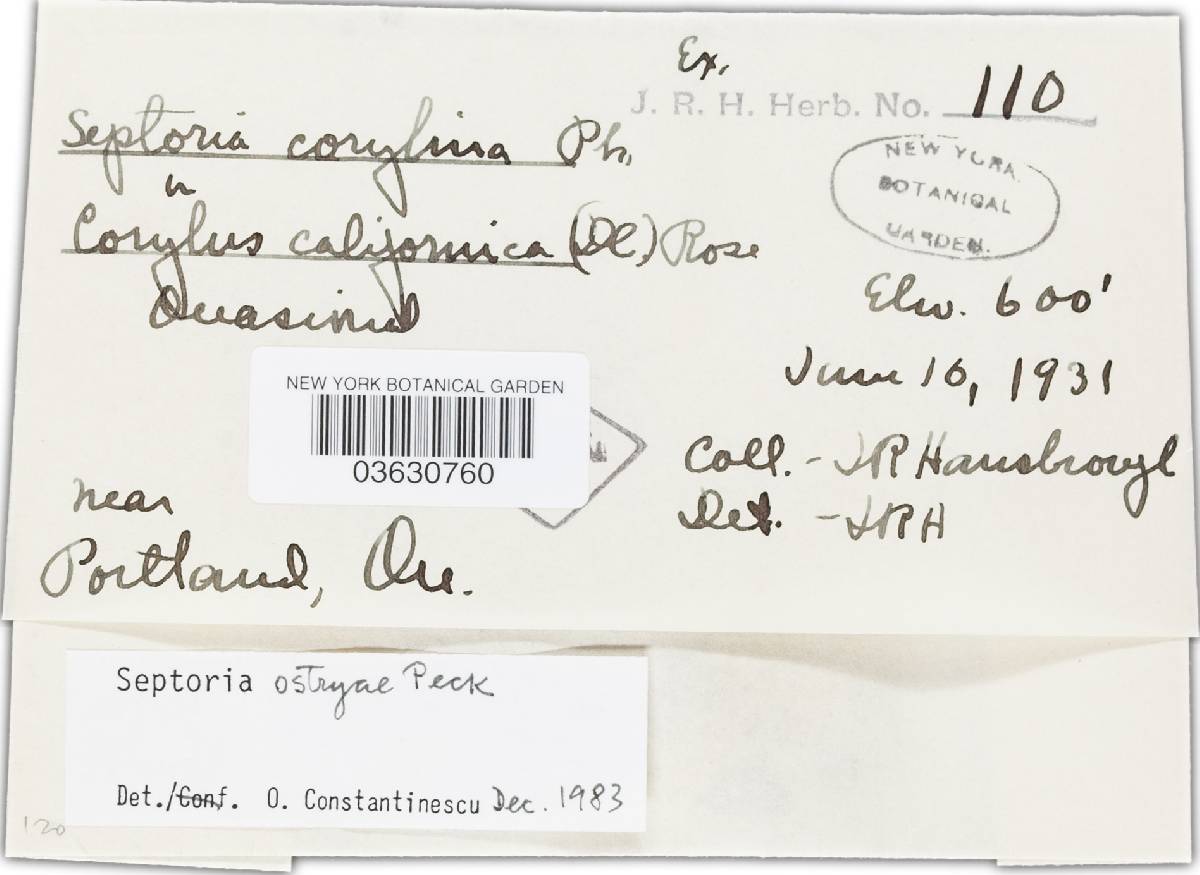 Ex.
J. R. H. Herb. No. 110
Septoria corylina Pk.
NEW YORK
BOTANICAL
GARDEN.
Corylus californica (DC) Rose
Elev. 600'
June 16, 1931
NEW YORK BOTANICAL GARDEN
03630760
Coll. - JR Hansbrough
Det. - JRH
near
Portland, Ore.
Septoria ostryae Peck
Det./Conf. O. Constantinescu Dec. 1983
120